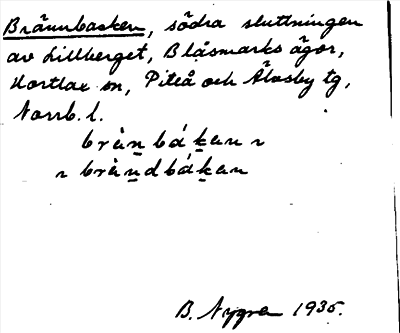 Brännbacken, södra sluttningen
av Lillberget, Blåsmarks ägor,
Hortlax sn, Piteå och Älvsby tg,
Norrb. l.
brä̀n̲ bák̲en ~
~ brä̀n̲dbák̲en
B. Nygren 1935.